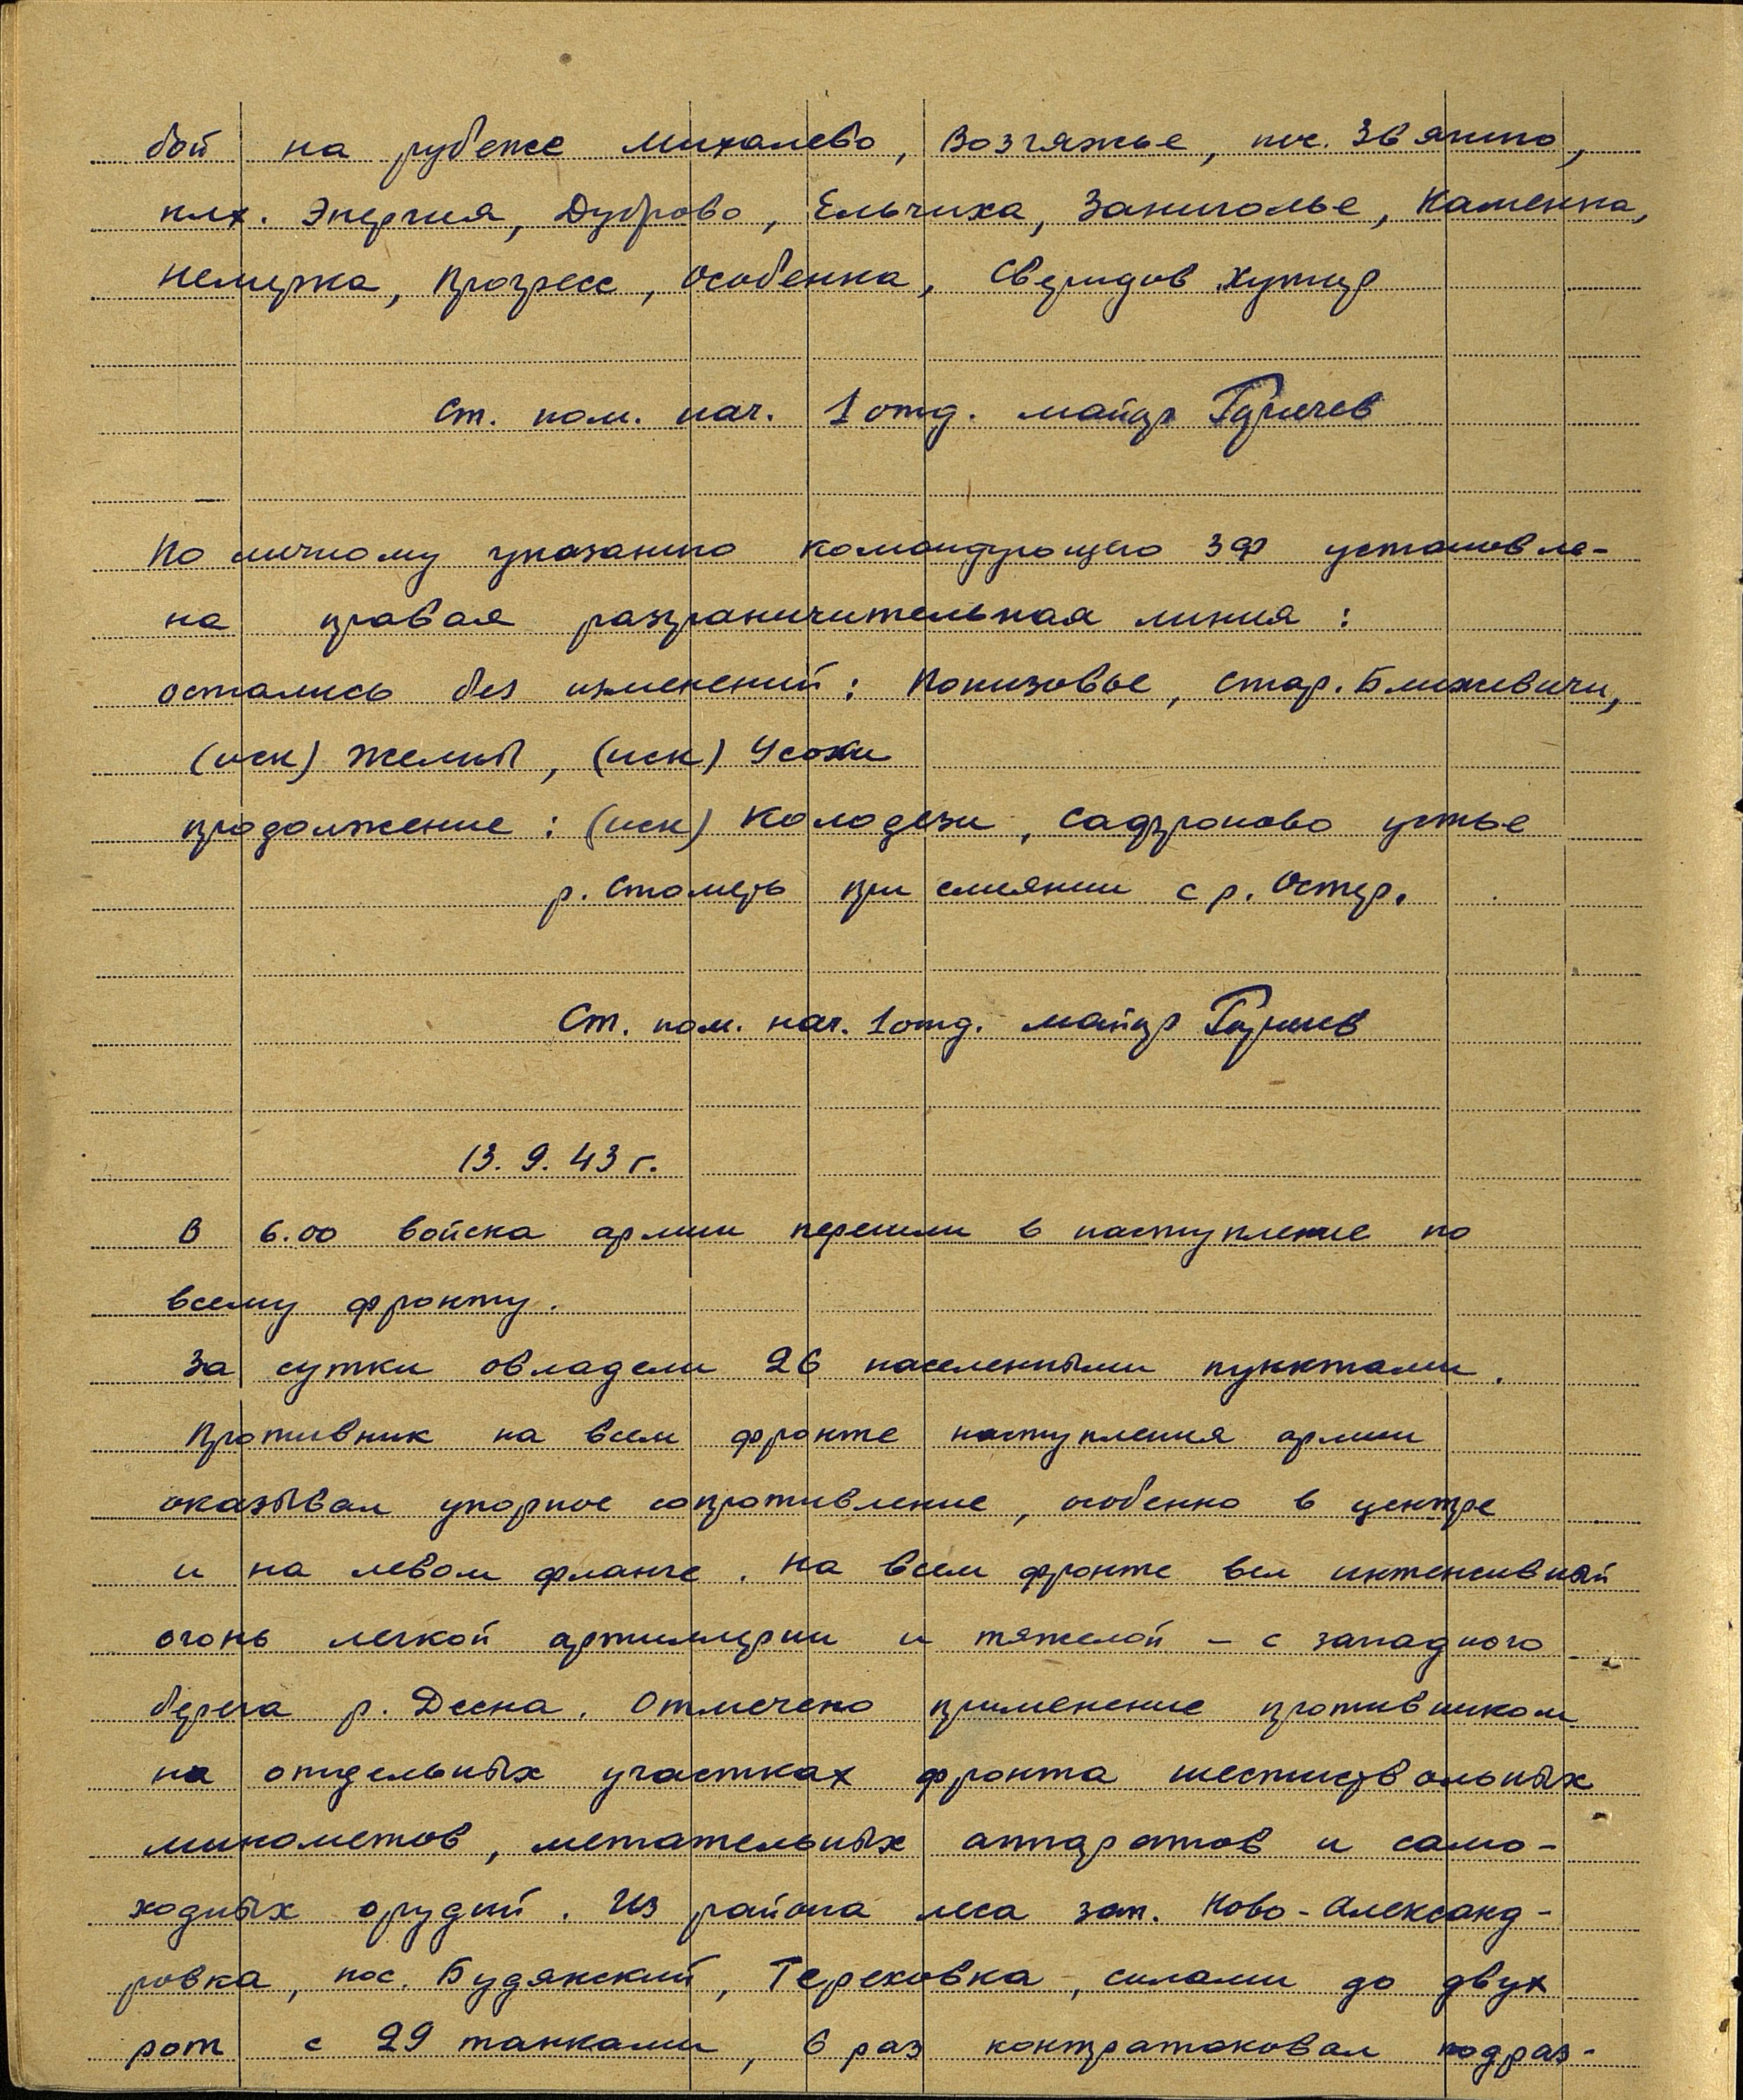 бой на рубеже Михалево, Возгяжье, пос. Звянино,
клх. Энергия, Дуброво, Ельчиха, Заниголье, Каменка,
Немерка, Прогресс, Особенка, Свиридов Хутор
Ст. пом. нач. 1 отд. майор
По личному указанию командующего ЗФ установле-
на правая разграничительная линия:
остались без изменений: Понизовье, Стар. Ближевичи,
(иск) Желны, (иск) Усохи
продолжение: (иск) Колодези, Сафроново устье
р. Стометь при слиянии с р. Остер.
Ст. пом. нач. 1 отд. майор
13.9.43 г.
В 6.00 войска армии перешли в наступление по
всему фронту.
За сутки овладели 26 населенными пунктами.
Противник на всем фронте наступления армии
оказывал упорное сопротивление, особенно в центре
и на левом фланге. На всем фронте вел интенсивный
огонь легкой артиллерии и тяжелой – с западного
берега р. Десна. Отмечено применение противником
на отдельных участках фронта шестиствольных
минометов, метательных аппаратов и само-
ходных орудий. Из района леса зап. Ново-Александ-
ровка, пос. Будянский, Тереховка, силами до двух
рот с 29 танками, 6 раз контратаковал подраз-